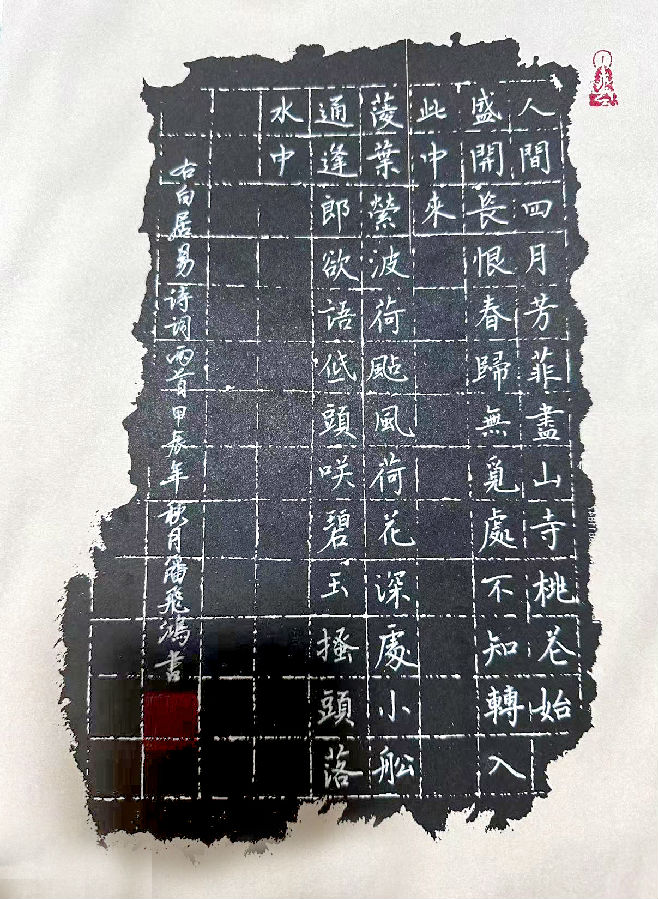 人間四月芳菲盡山寺桃花始
盛開長恨春歸無覓處不知轉入
此中來
菱葉縈波荷颭風荷花深處小船
通逢郎欲語低頭咲碧玉搔頭落
水中
右白居易诗词兩首甲辰年秋月潘飛鴻書